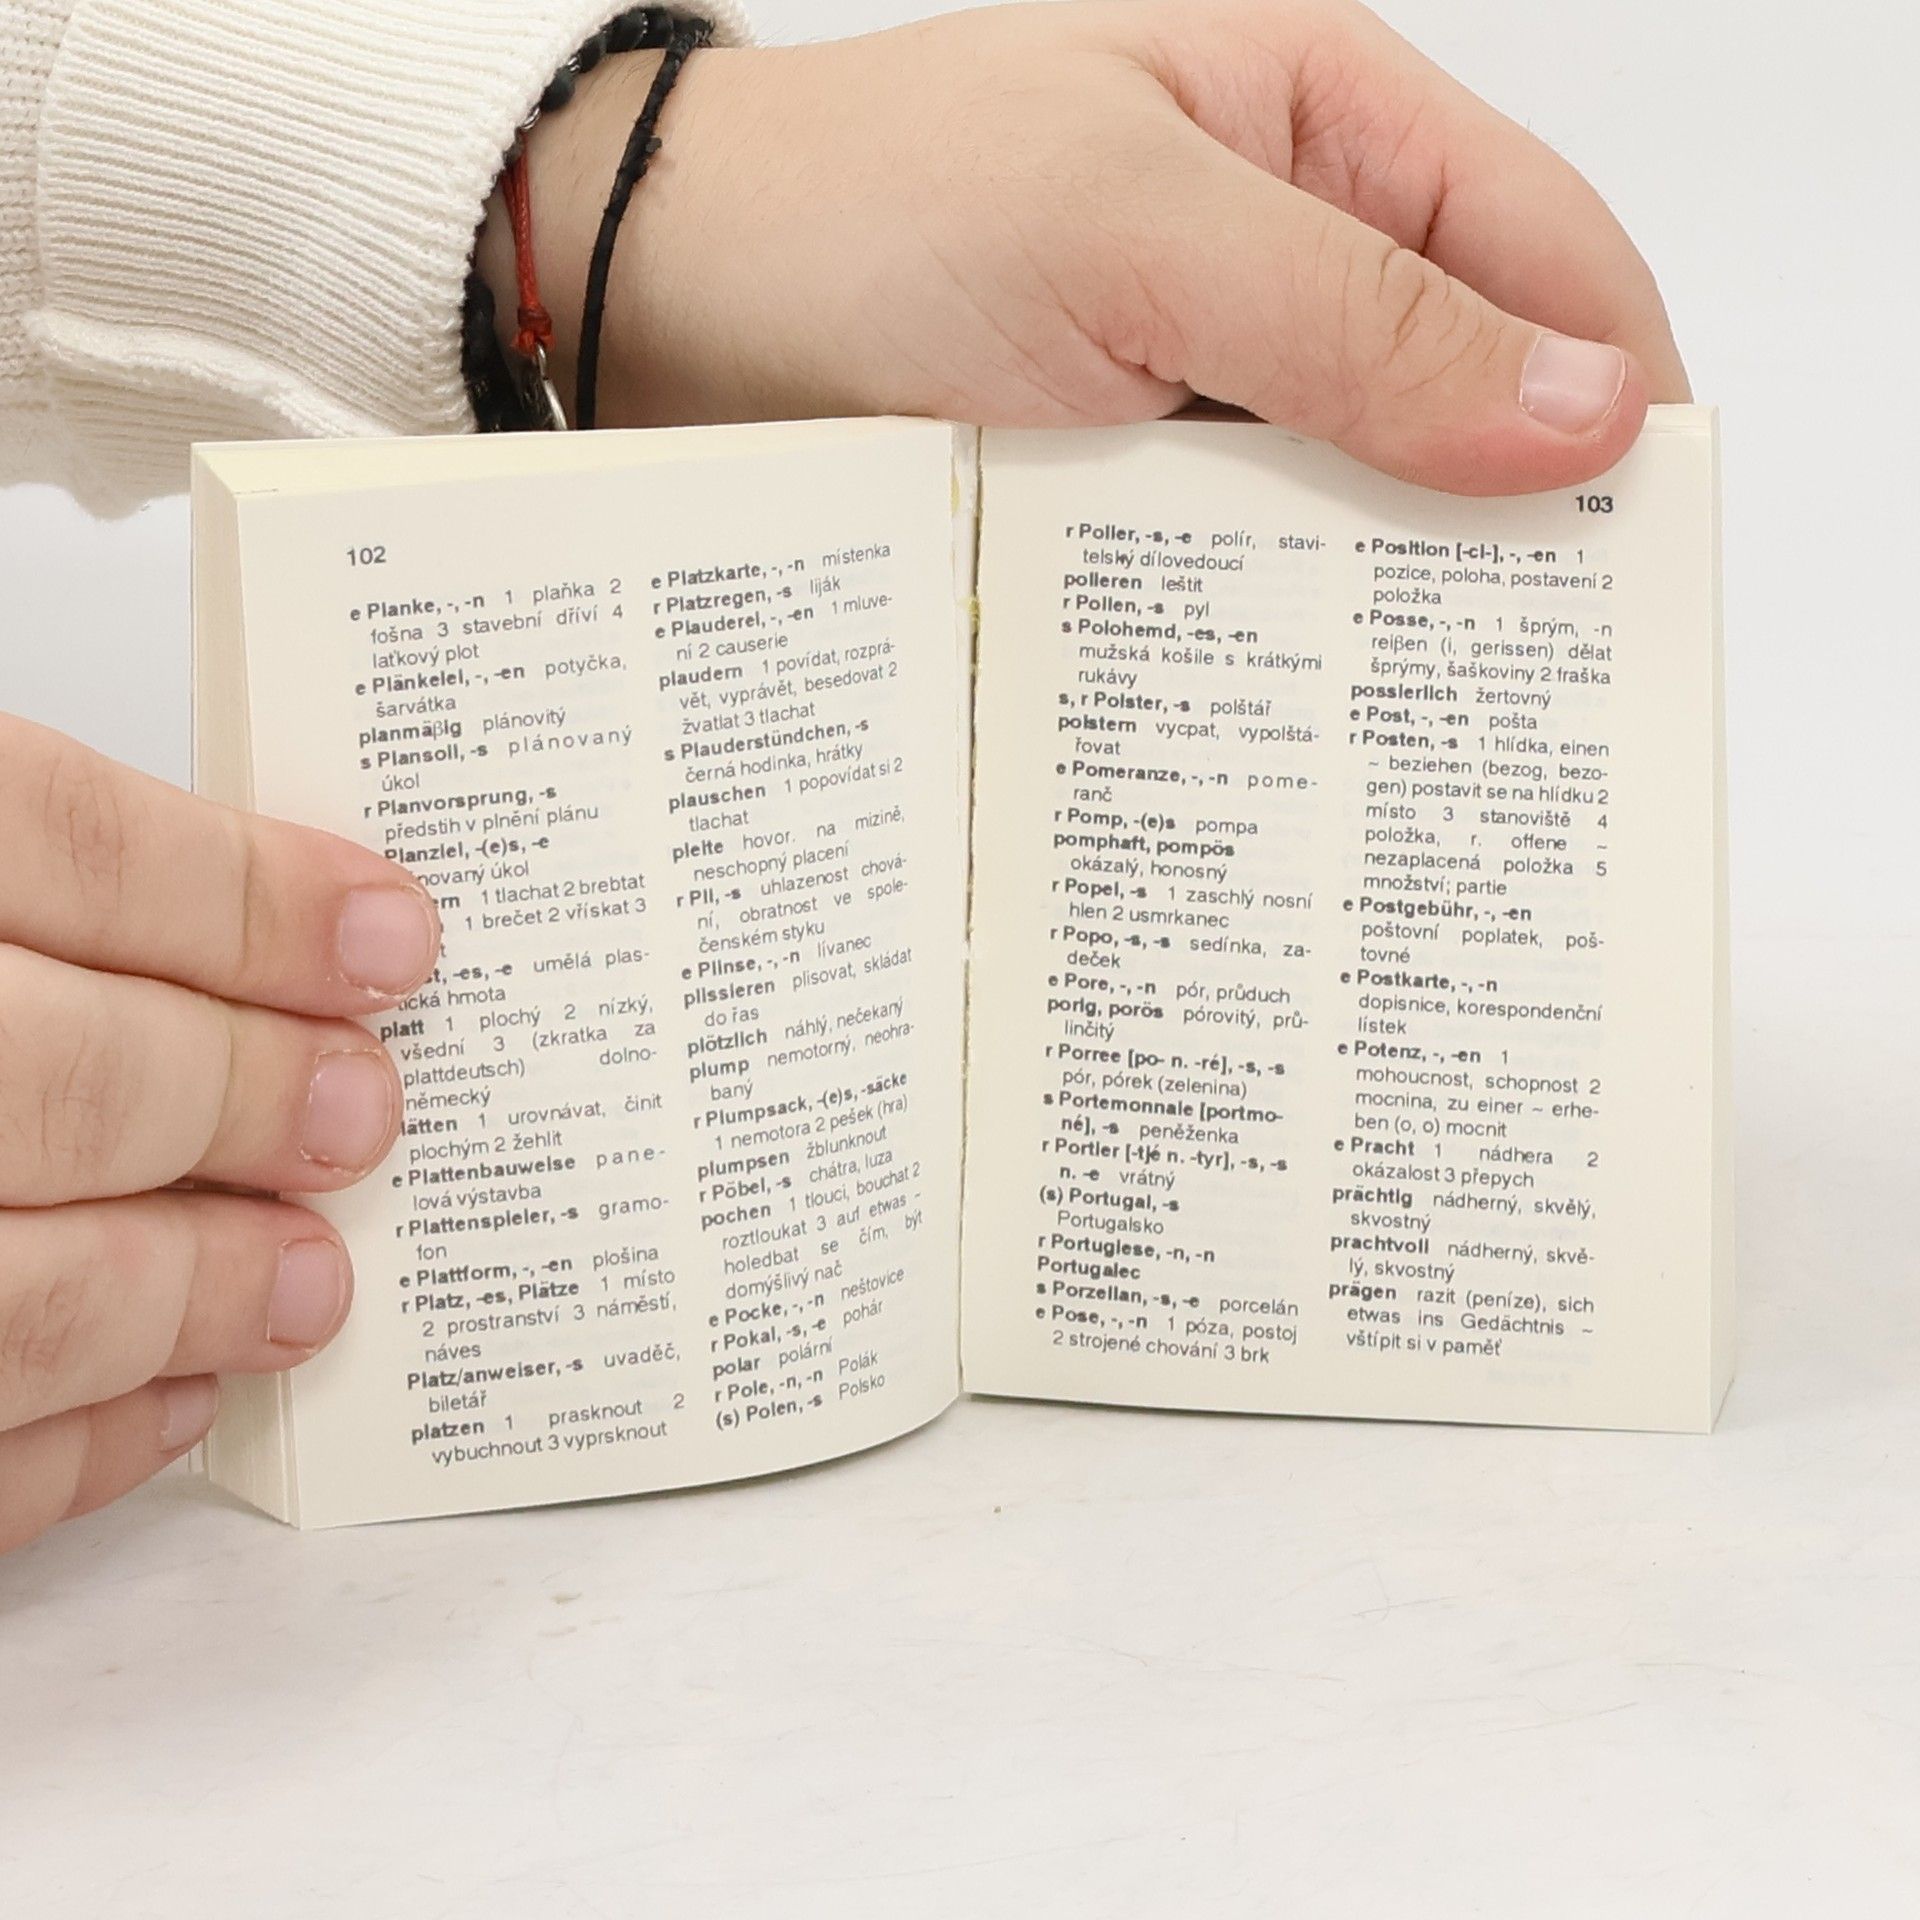 102
e Planke, -, -n 1 plaňka 2
fošna 3 stavební dříví 4
laťkový plot
e Plänkelei, -, -en potyčka,
šarvátka
planmäßig plánovitý
s Plansoll, -s plánovaný
úkol
r Planvorsprung, -s
předstih v plnění plánu
Planziel, -(e)s, -e
novaný úkol
ern 1 tlachat 2 brebtat
1 brečet 2 vřískat 3
t
st, -es, -e umělá plas-
tická hmota
platt 1 plochý 2 nízký,
všední 3 (zkratka za
plattdeutsch) dolno-
německý
lätten 1 urovnávat, činit
plochým 2 žehlit
e Plattenbauweise pane-
lová výstavba
r Plattenspieler, -s gramo-
fon
e Plattform, -, -en plošina
r Platz, -es, Plätze 1 místo
2 prostranství 3 náměstí,
náves
Platz/anweiser, -s uvaděč,
biletář
platzen 1 prasknout 2
vybuchnout 3 vyprsknout
e Platzkarte, -, -n místenka
r Platzregen, -s liják
e Plauderei, -, -en 1 mluve-
ní 2 causerie
plaudern 1 povídat, rozprá-
vět, vyprávět, besedovat 2
žvatlat 3 tlachat
s Plauderstündchen, -s
černá hodinka, hrátky
plauschen 1 popovídat si 2
tlachat
pleite hovor. na mizině,
neschopný placení
r Pli, -s uhlazenost chová-
ní, obratnost ve spole-
čenském styku
e Plinse, -, -n lívanec
plissieren plisovat, skládat
do řas
plötzlich náhlý, nečekaný
plump nemotorný, neohra-
baný
r Plumpsack, -(e)s, -säcke
1 nemotora 2 pešek (hra)
plumpsen žblunknout
r Pöbel, -s chátra, luza
pochen 1 tlouci, bouchat 2
roztloukat 3 auf etwas ~
holedbat se čím, být
domýšlivý nač
e Pocke, -, -n neštovice
r Pokal, -s, -e pohár
polar polární
r Pole, -n, -n Polák
(s) Polen, -s Polsko
103
r Polier, -s, -e polír, stavi-
telský dílovedoucí
polieren leštit
r Pollen, -s pyl
s Polohemd, -es, -en
mužská košile s krátkými
rukávy
s, r Polster, -s polštář
polstern vycpat, vypolštá-
řovat
e Pomeranze, -, -n pome-
ranč
r Pomp, -(e)s pompa
pomphaft, pompös
okázalý, honosný
r Popel, -s 1 zaschlý nosní
hlen 2 usmrkanec
r Popo, -s, -s sedínka, za-
deček
e Pore, -, -n pór, průduch
porig, porös pórovitý, prů-
linčitý
r Porree [po- n. -ré], -s, -s
pór, pórek (zelenina)
s Portemonnaie [portmo-
né], -s peněženka
r Portier [-tjé n. -tyr], -s, -s
n. -e vrátný
(s) Portugal, -s
Portugalsko
r Portugiese, -n, -n
Portugalec
s Porzellan, -s, -e porcelán
e Pose, -, -n 1 póza, postoj
2 strojené chování 3 brk
e Position [-ci-], -, -en 1
pozice, poloha, postavení 2
položka
e Posse, -, -n 1 šprým, -n
reißen (i, gerissen) dělat
šprýmy, šaškoviny 2 fraška
possierlich žertovný
e Post, -, -en pošta
r Posten, -s 1 hlídka, einen
~ beziehen (bezog, bezo-
gen) postavit se na hlídku 2
místo 3 stanoviště 4
položka, r. offene ~
nezaplacená položka 5
množství; partie
e Postgebühr, -, -en
poštovní poplatek, poš-
tovné
e Postkarte, -, -n
dopisnice, korespondenční
lístek
e Potenz, -, -en 1
mohoucnost, schopnost 2
mocnina, zu einer ~ erhe-
ben (o, o) mocnit
e Pracht 1 nádhera 2
okázalost 3 přepych
prächtig nádherný, skvělý,
skvostný
prachtvoll nádherný, skvě-
lý, skvostný
prägen razit (peníze), sich
etwas ins Gedächtnis ~
vštípit si v paměť